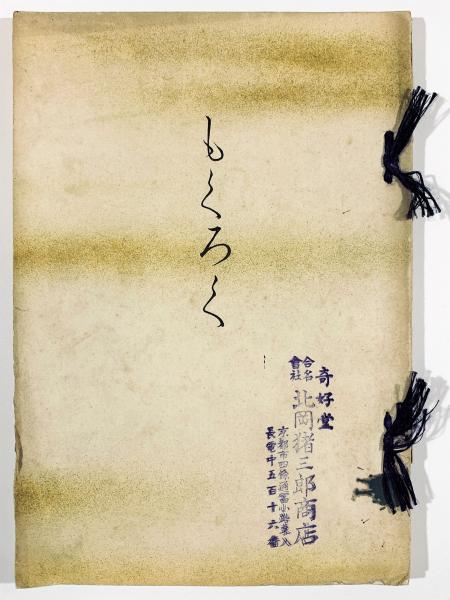 もくろく
奇好堂
合名會社 北岡猪三郎商店
京都市四條通富小路東入
長電中五百十六番